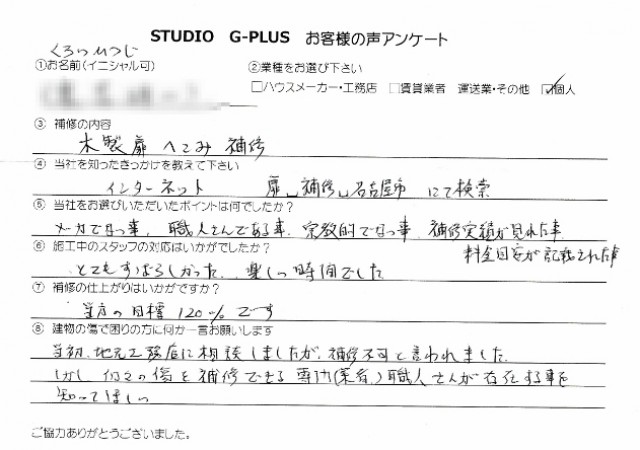 STUDIO G-PLUS お客様の声アンケート
くろいひつじ
①お名前(イニシャル可) ②業種をお選び下さい
□ハウスメーカー・工務店 □賃貸業者 運送業・その他 ☑個人
③ 補修の内容
木製扉 へこみ 補修
④ 当社を知ったきっかけを教えて下さい
インターネット 扉␣補修␣名古屋市 にて検索
⑤ 当社をお選びいただいたポイントは何でしたか?
職人さんである事、宗教的でない事、補修実績が見れた事
料金目安が記載された事
⑥ 施工中のスタッフの対応はいかがでしたか?
とてもすばらしかった、楽しい時間でした
⑦ 補修の仕上がりはいかがですか?
当方の目標 120%です
⑧ 建物の傷で困りの方に何か一言お願いします
当初、地元工務店に相談しましたが、補修不可と言われました。
しかし の傷を補修できる専門(業者)職人さんが存在する事を
知ってほしい
ご協力ありがとうございました。